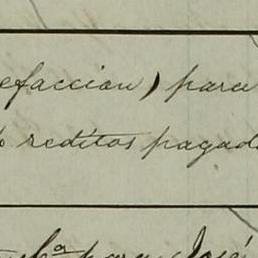 efaccion) para
% reditos pagad
para José